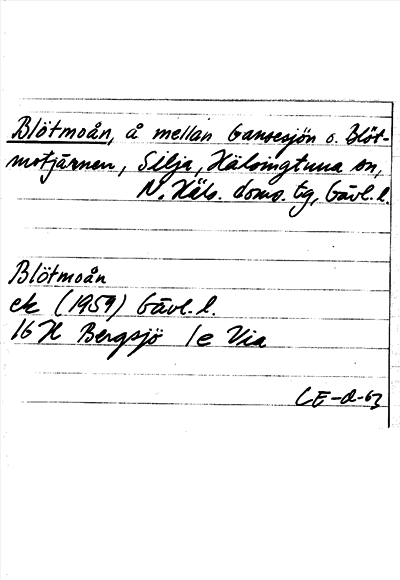 Blötmoån, å mellan Gansesjön o. Blöt-
motjärnen, Silja, Hälsingtuna sn,
N. Häls. doms. tg, Gävl. l.
Blötmoån
ek (1959) Gävl. l.
16 H Bergsjö 1e Via
CE-d-63